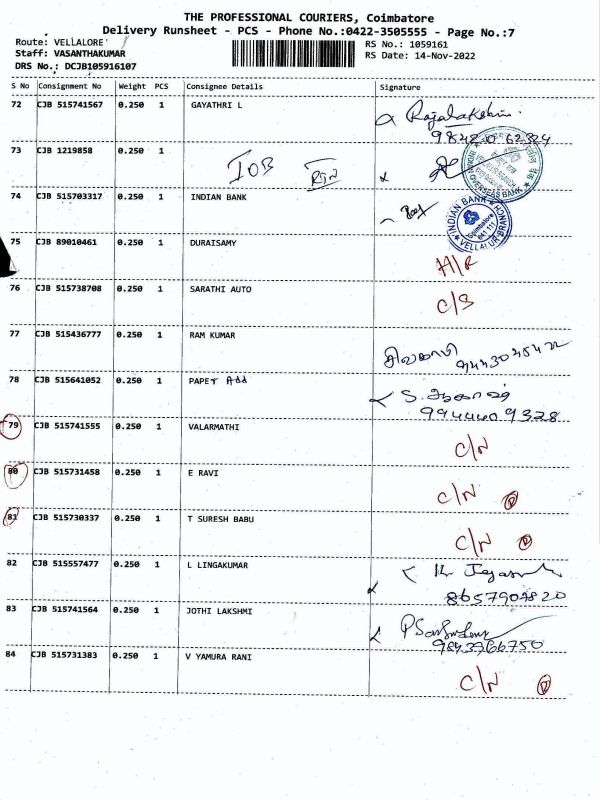 THE PROFESSIONAL COURIERS, Coimbatore
Delivery Runsheet - PCS - Phone No.:0422-3505555 - Page No.:7
Route: VELLALORE
RS No.: 1059161
Staff: VASANTHAKUMAR
RS Date: 14-Nov-2022
DRS No.: DCJB105916107
S No Consignment No Weight PCS Consignee Details Signature
72 CJB 515741567 0.250 1 GAYATHRI L
73 CJB 1219858 0.250 1 IOB
74 CJB 515703317 0.250 1 INDIAN BANK
INDIAN OVERSEAS BANK
INDIAN BANK
Coimbatore
641 111
VELLALUR BRANCH
75 CJB 89010461 0.250 1 DURAISAMY
76 CJB 515738708 0.250 1 SARATHI AUTO C/S
77 CJB 515436777 0.250 1 RAM KUMAR
78 CJB 515641052 0.250 1 PAPER Add
9944409328
79 CJB 515741555 0.250 1 VALARMATHI C/N
80 CJB 515731458 0.250 1 E RAVI C/N
81 CJB 515730337 0.250 1 T SURESH BABU C/N
82 CJB 515557477 0.250 1 L LINGAKUMAR
83 CJB 515741564 0.250 1 JOTHI LAKSHMI
9843966750
84 CJB 515731383 0.250 1 V YAMURA RANI C/N